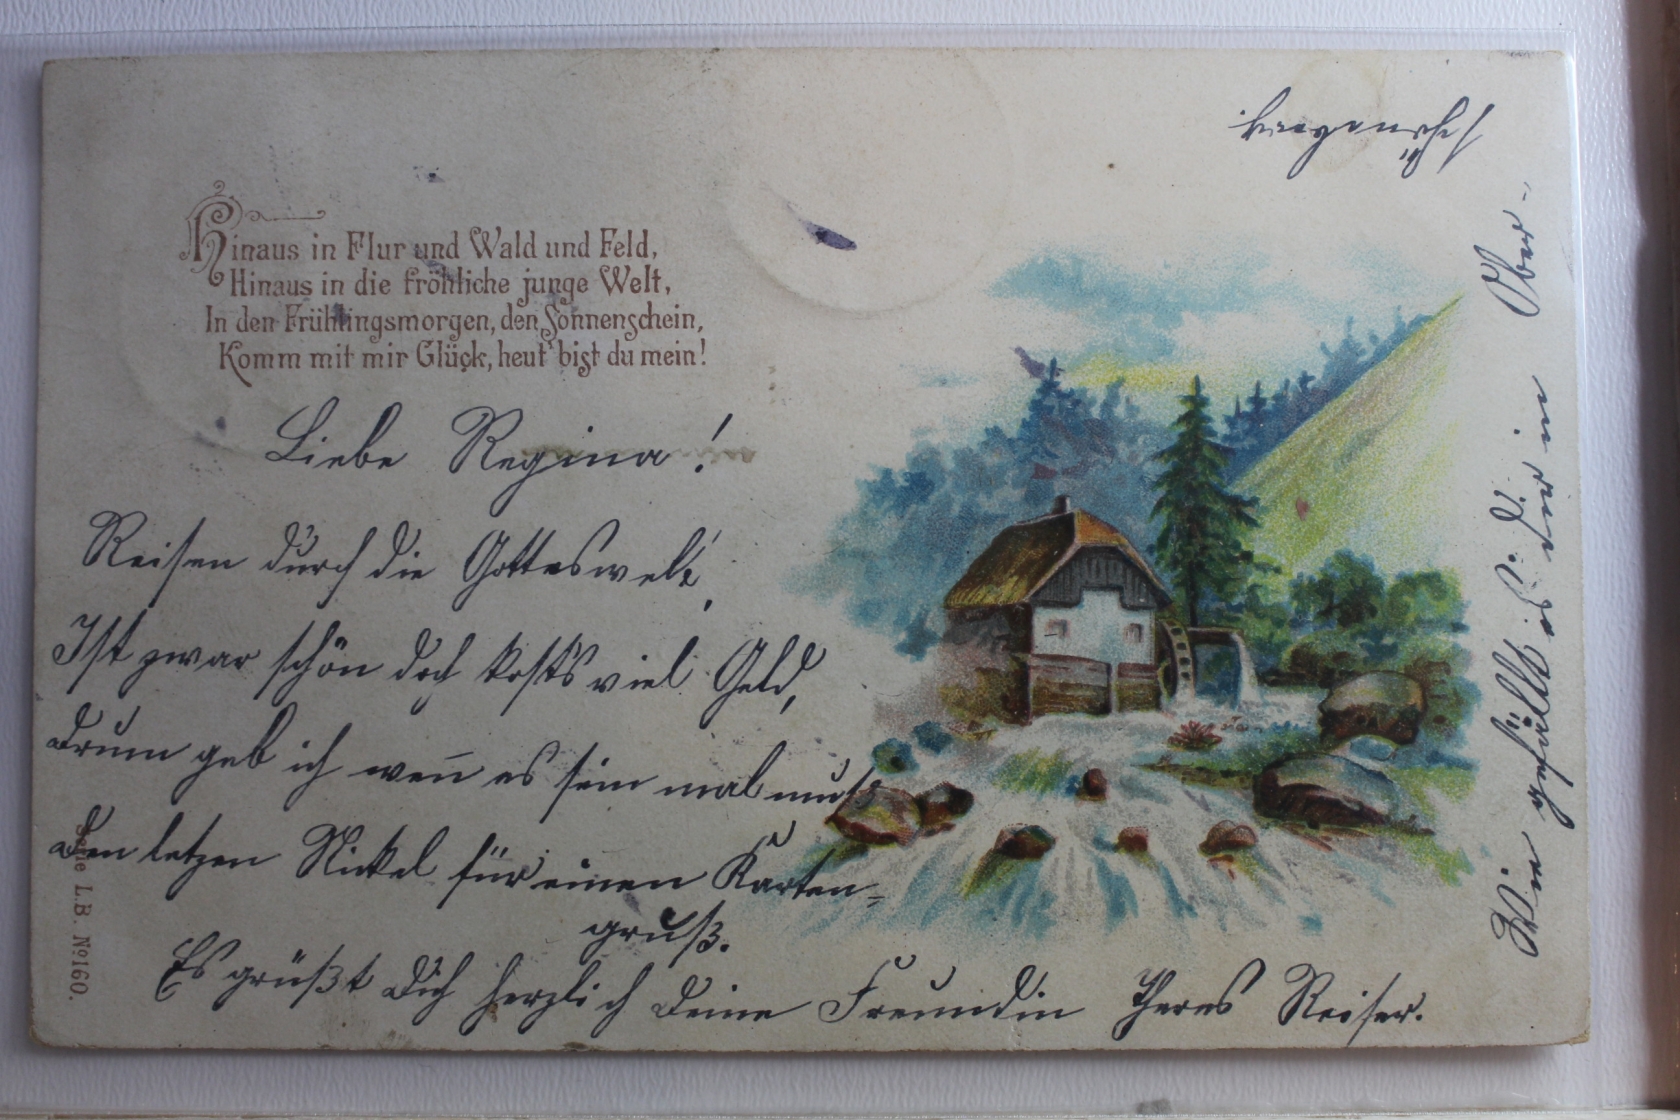 Hinaus in Flur und Wald und Feld,
Hinaus in die fröhliche junge Welt,
In den Frühlingsmorgen, den Sonnenschein,
Komm mit mir Glück, heut' bist du mein!
Liebe Regina!
Reisen durch die Gotteswelt,
Ist zwar schön doch kost's viel Geld,
Drum geb ich wen̄ es sein mal muß
Den letzen Nickel für einen Karten=
gruß.
Es grüßt Dich herzlich Deine Freundin Theres Reiser.
Wie gefällt es Dir in Ober-
Serie L.B. No 160.